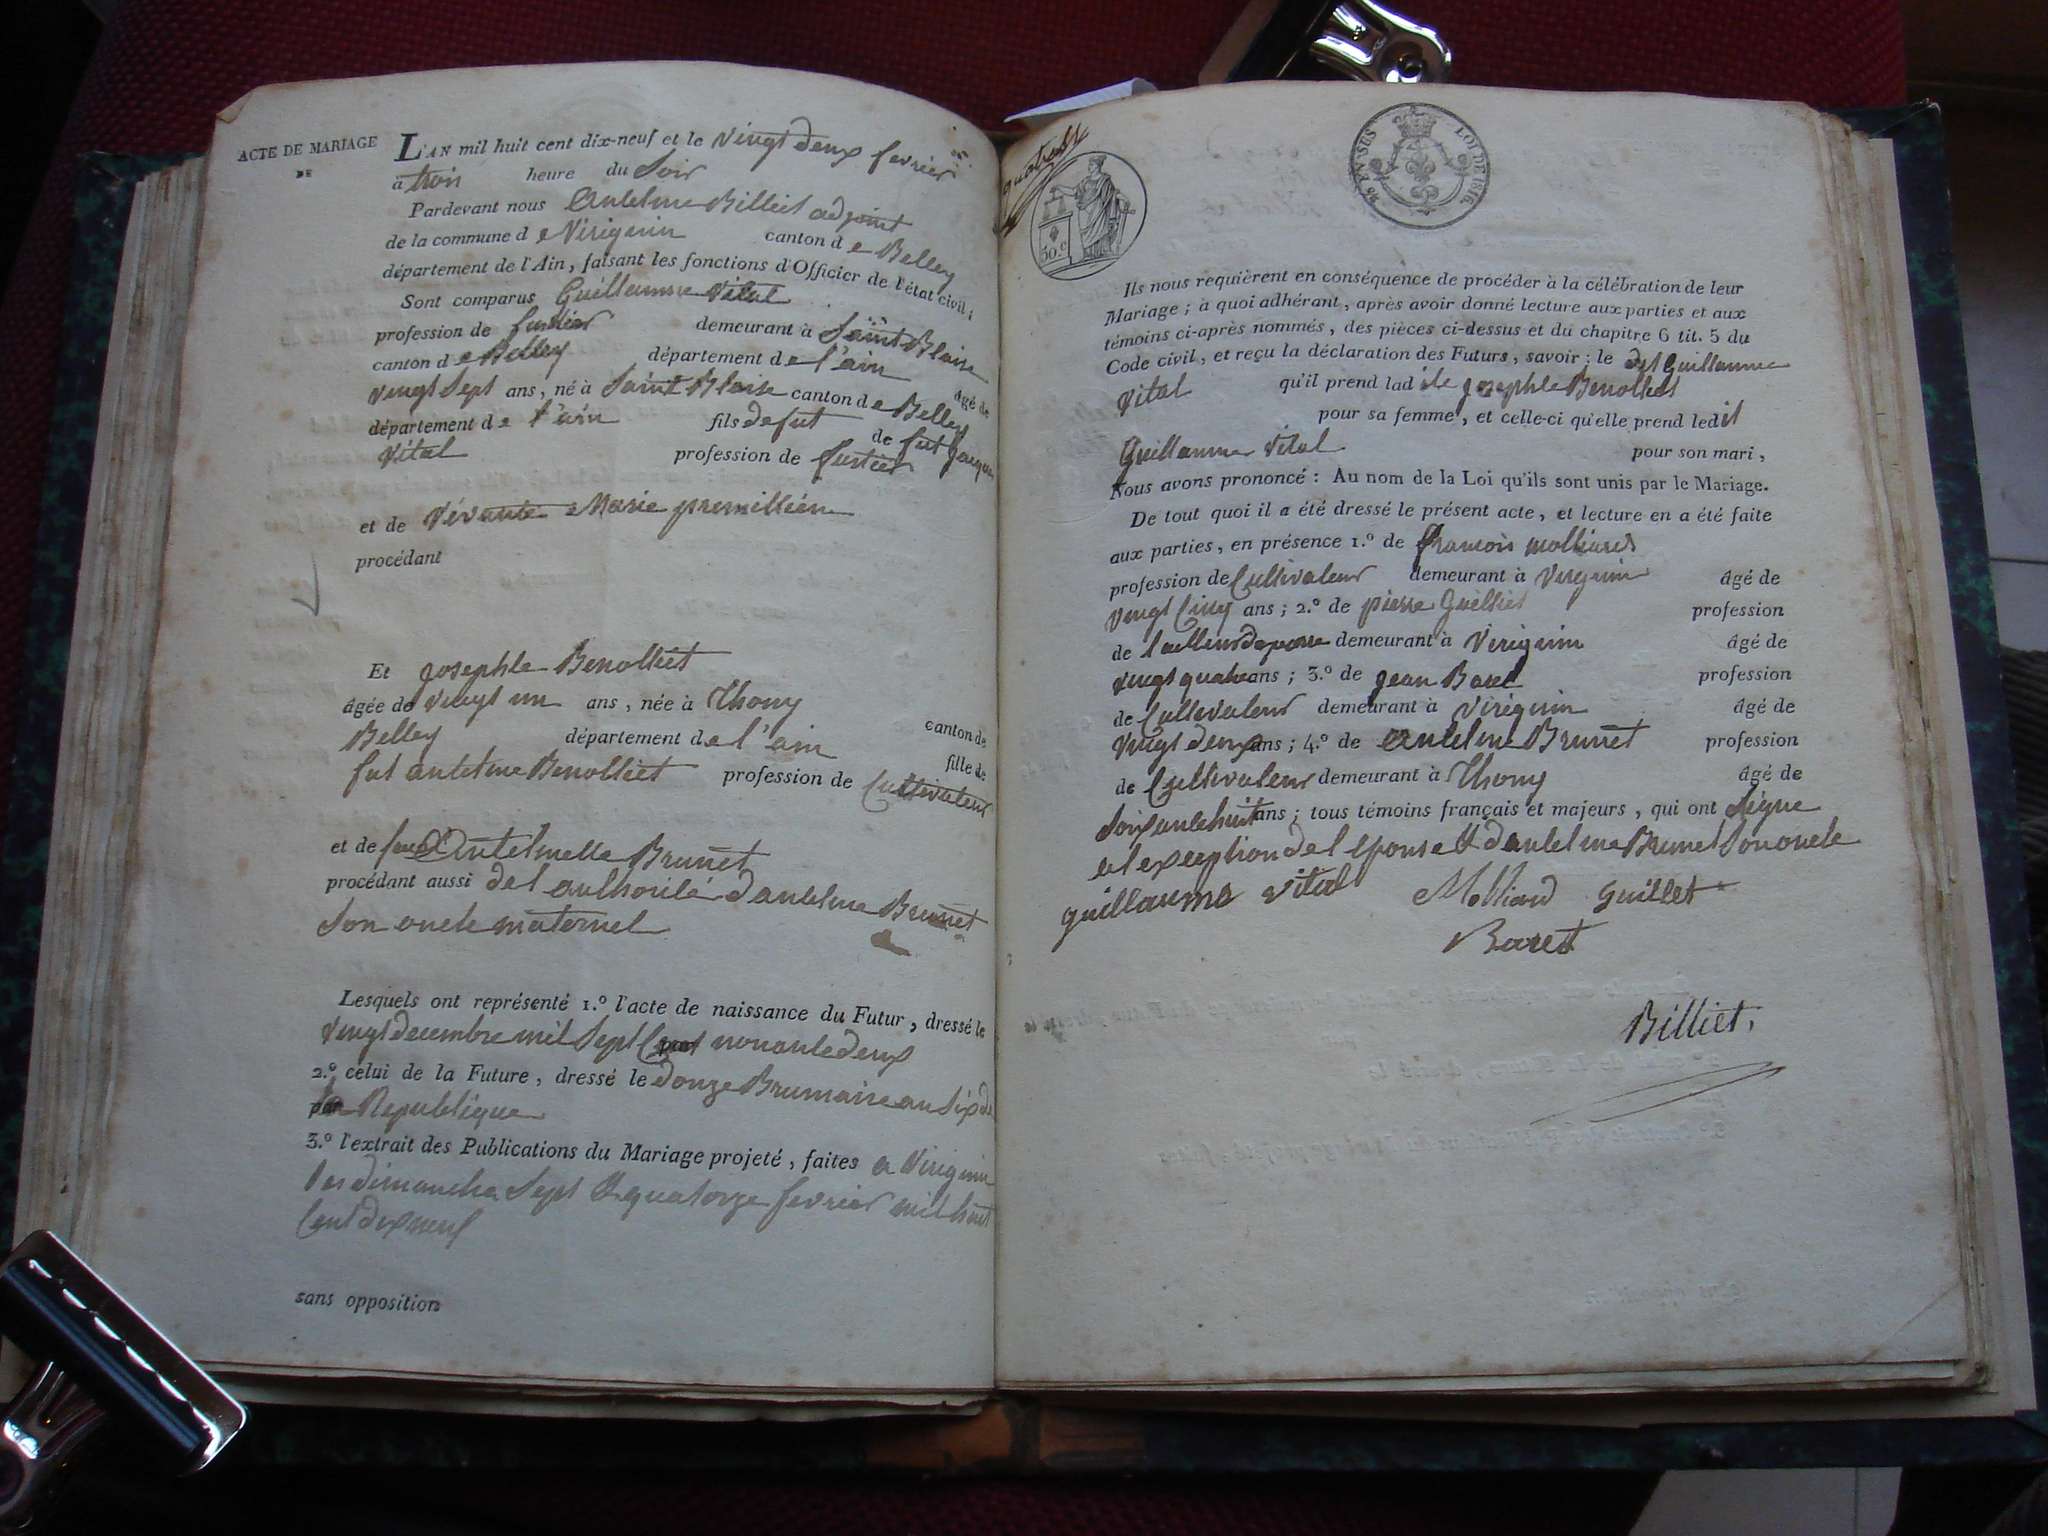 ACTE DE MARIAGE
DE
L'AN mil huit cent dix-neuf et le vingt deux fevrier
à trois heure du Soir
Pardevant nous Antelme Billiet adjoint
de la commune de Virignin canton de Belley
département de l'Ain, faisant les fonctions d'Officier de l'état civil;
Sont comparus Guillaume Vital
profession de fustier demeurant à Saint Blaise
canton de Belley département de l'ain âgé de
vingt Sept ans, né à Saint Blaise canton de Belley
département de l'ain fils de fut de fut Jacque
Vital profession de fustier
et de Vivante Marie premillieu
procédant
Et Josephte Benolliet
âgée de vingt un ans, née à Thony canton de
Belley département de l'ain fille de
fut antelme Benolliet profession de Cultivateur
et de feue Antelmette Brunet
procédant aussi de l'authorité d'antelme Brunet
Son oncle maternel
Lesquels ont représenté 1.º l'acte de naissance du Futur, dressé le
vingt decembre mil Sept Cent nonante deux
2.º celui de la Future, dressé le douze Brumaire an Six de
la Republique
3.º l'extrait des Publications du Mariage projeté, faites a Virignin
les dimanche Sept & quatorze fevrier mil huit
Cent dix neuf
sans opposition
50.c
EN SUS
LOI DE 1816
Ils nous requièrent en conséquence de procéder à la célébration de leur
Mariage; à quoi adhérant, après avoir donné lecture aux parties et aux
témoins ci-après nommés, des pièces ci-dessus et du chapitre 6 tit. 5 du
Code civil, et reçu la déclaration des Futurs, savoir: le dit Guillaume
Vital qu'il prend ladite Josephte Benolliet
pour sa femme, et celle-ci qu'elle prend ledit
Guillaume Vital pour son mari,
Nous avons prononcé: Au nom de la Loi qu'ils sont unis par le Mariage.
De tout quoi il a été dressé le présent acte, et lecture en a été faite
aux parties, en présence 1.º de francois molliard
profession de Cultivateur demeurant à Virignin âgé de
vingt Cinq ans; 2.º de pierre Guilliet profession
de tailleur de pierre demeurant à Virignin âgé de
vingt quatre ans; 3.º de Jean Baret profession
de Cultivateur demeurant à Virignin âgé de
vingt deux ans; 4.º de Antelme Brunet profession
de Cultivateur demeurant à Thony âgé de
Soixante huit ans; tous témoins français et majeurs, qui ont Signé
a l'exception de l'épouse & d'antelme Brunet Son oncle
guillaume vital Molliard Guillet
Baret
Billiet,